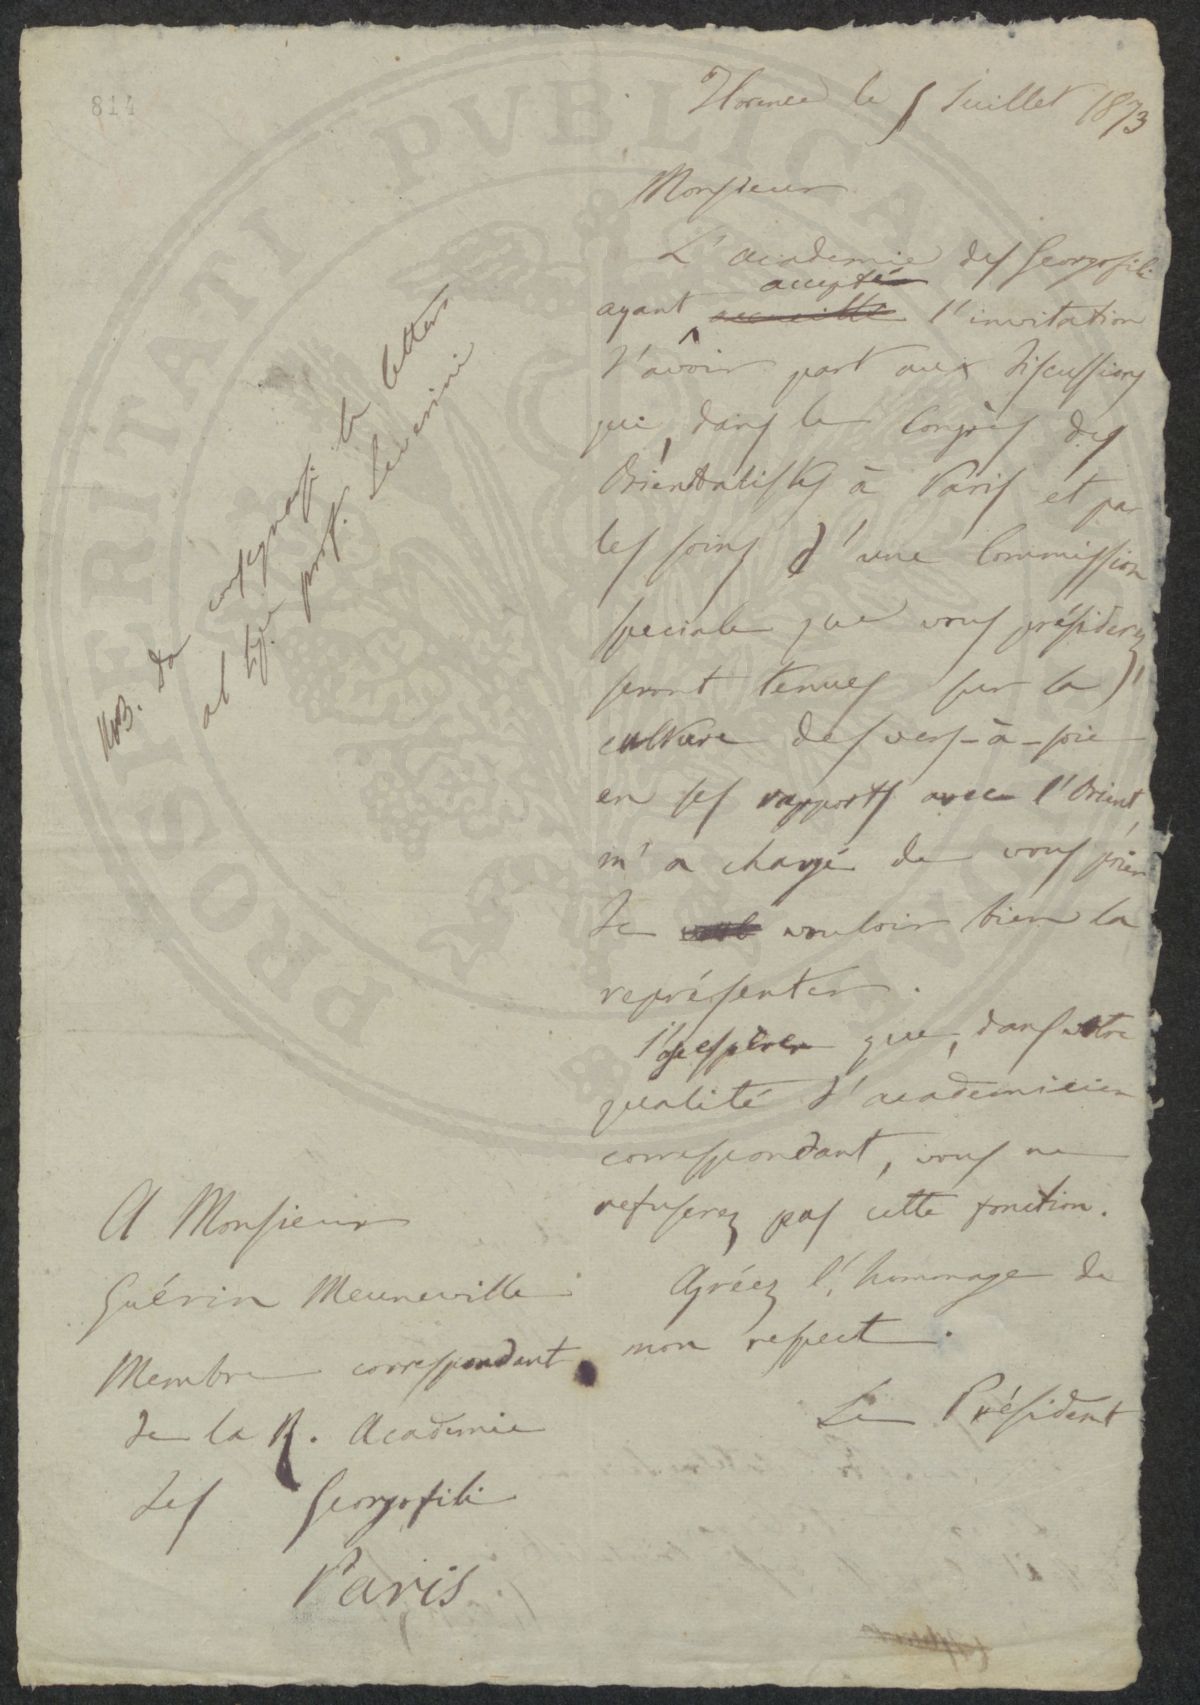 814
Florence le 5 Juillet 1873
Monsieur
L'academie des Georgofili
accepté
ayant accueilli l'invitation
d'avoir part aux discussions
qui, dans le Congrès des
Orientalistes à Paris et par
les soins d'une Commission
speciale que vous présiderez,
seront tenues sur la
culture des vers-à-soie
en ses rapports avec l'Orient,
m'a chargé de vous prier
de vouloir bien la
représenter.
J'espère que, dans votre
qualité d'academicien
correspondant, vous ne
refuserez pas cette fonction.
Agréez l'hommage de
mon respect.
Le Président
NB. Da consegnarsi la lettera
al Sig. prof. Severini
A Monsieur
Guérin Meneville
Membre correspondant
de la R. Academie
des Georgofili
Paris
PROSPERITATI PVBLICAE